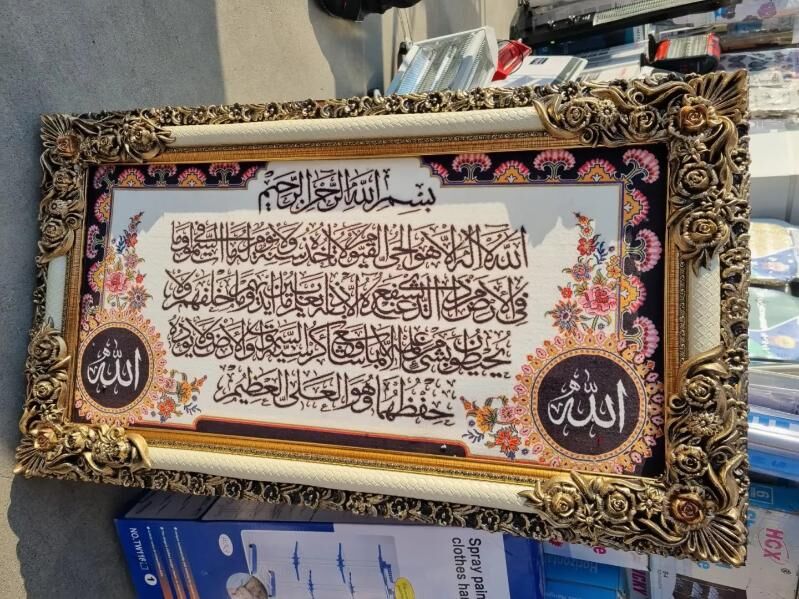 بسم الله الرحمن الرحيم
الله لا اله الا هو الحي القيوم لا تاخذه سنة ولا نوم له ما في السموت وما
في الارض من ذا الذي يشفع عنده الا باذنه يعلم ما بين ايديهم وما خلفهم ولا
يحيطون بشيء من علمه الا بما شاء وسع كرسيه السموت والارض ولا يوده
حفظهما وهو العلي العظيم
الله
الله
NO.TW116
1
Spray pain
clothes ha
HCX